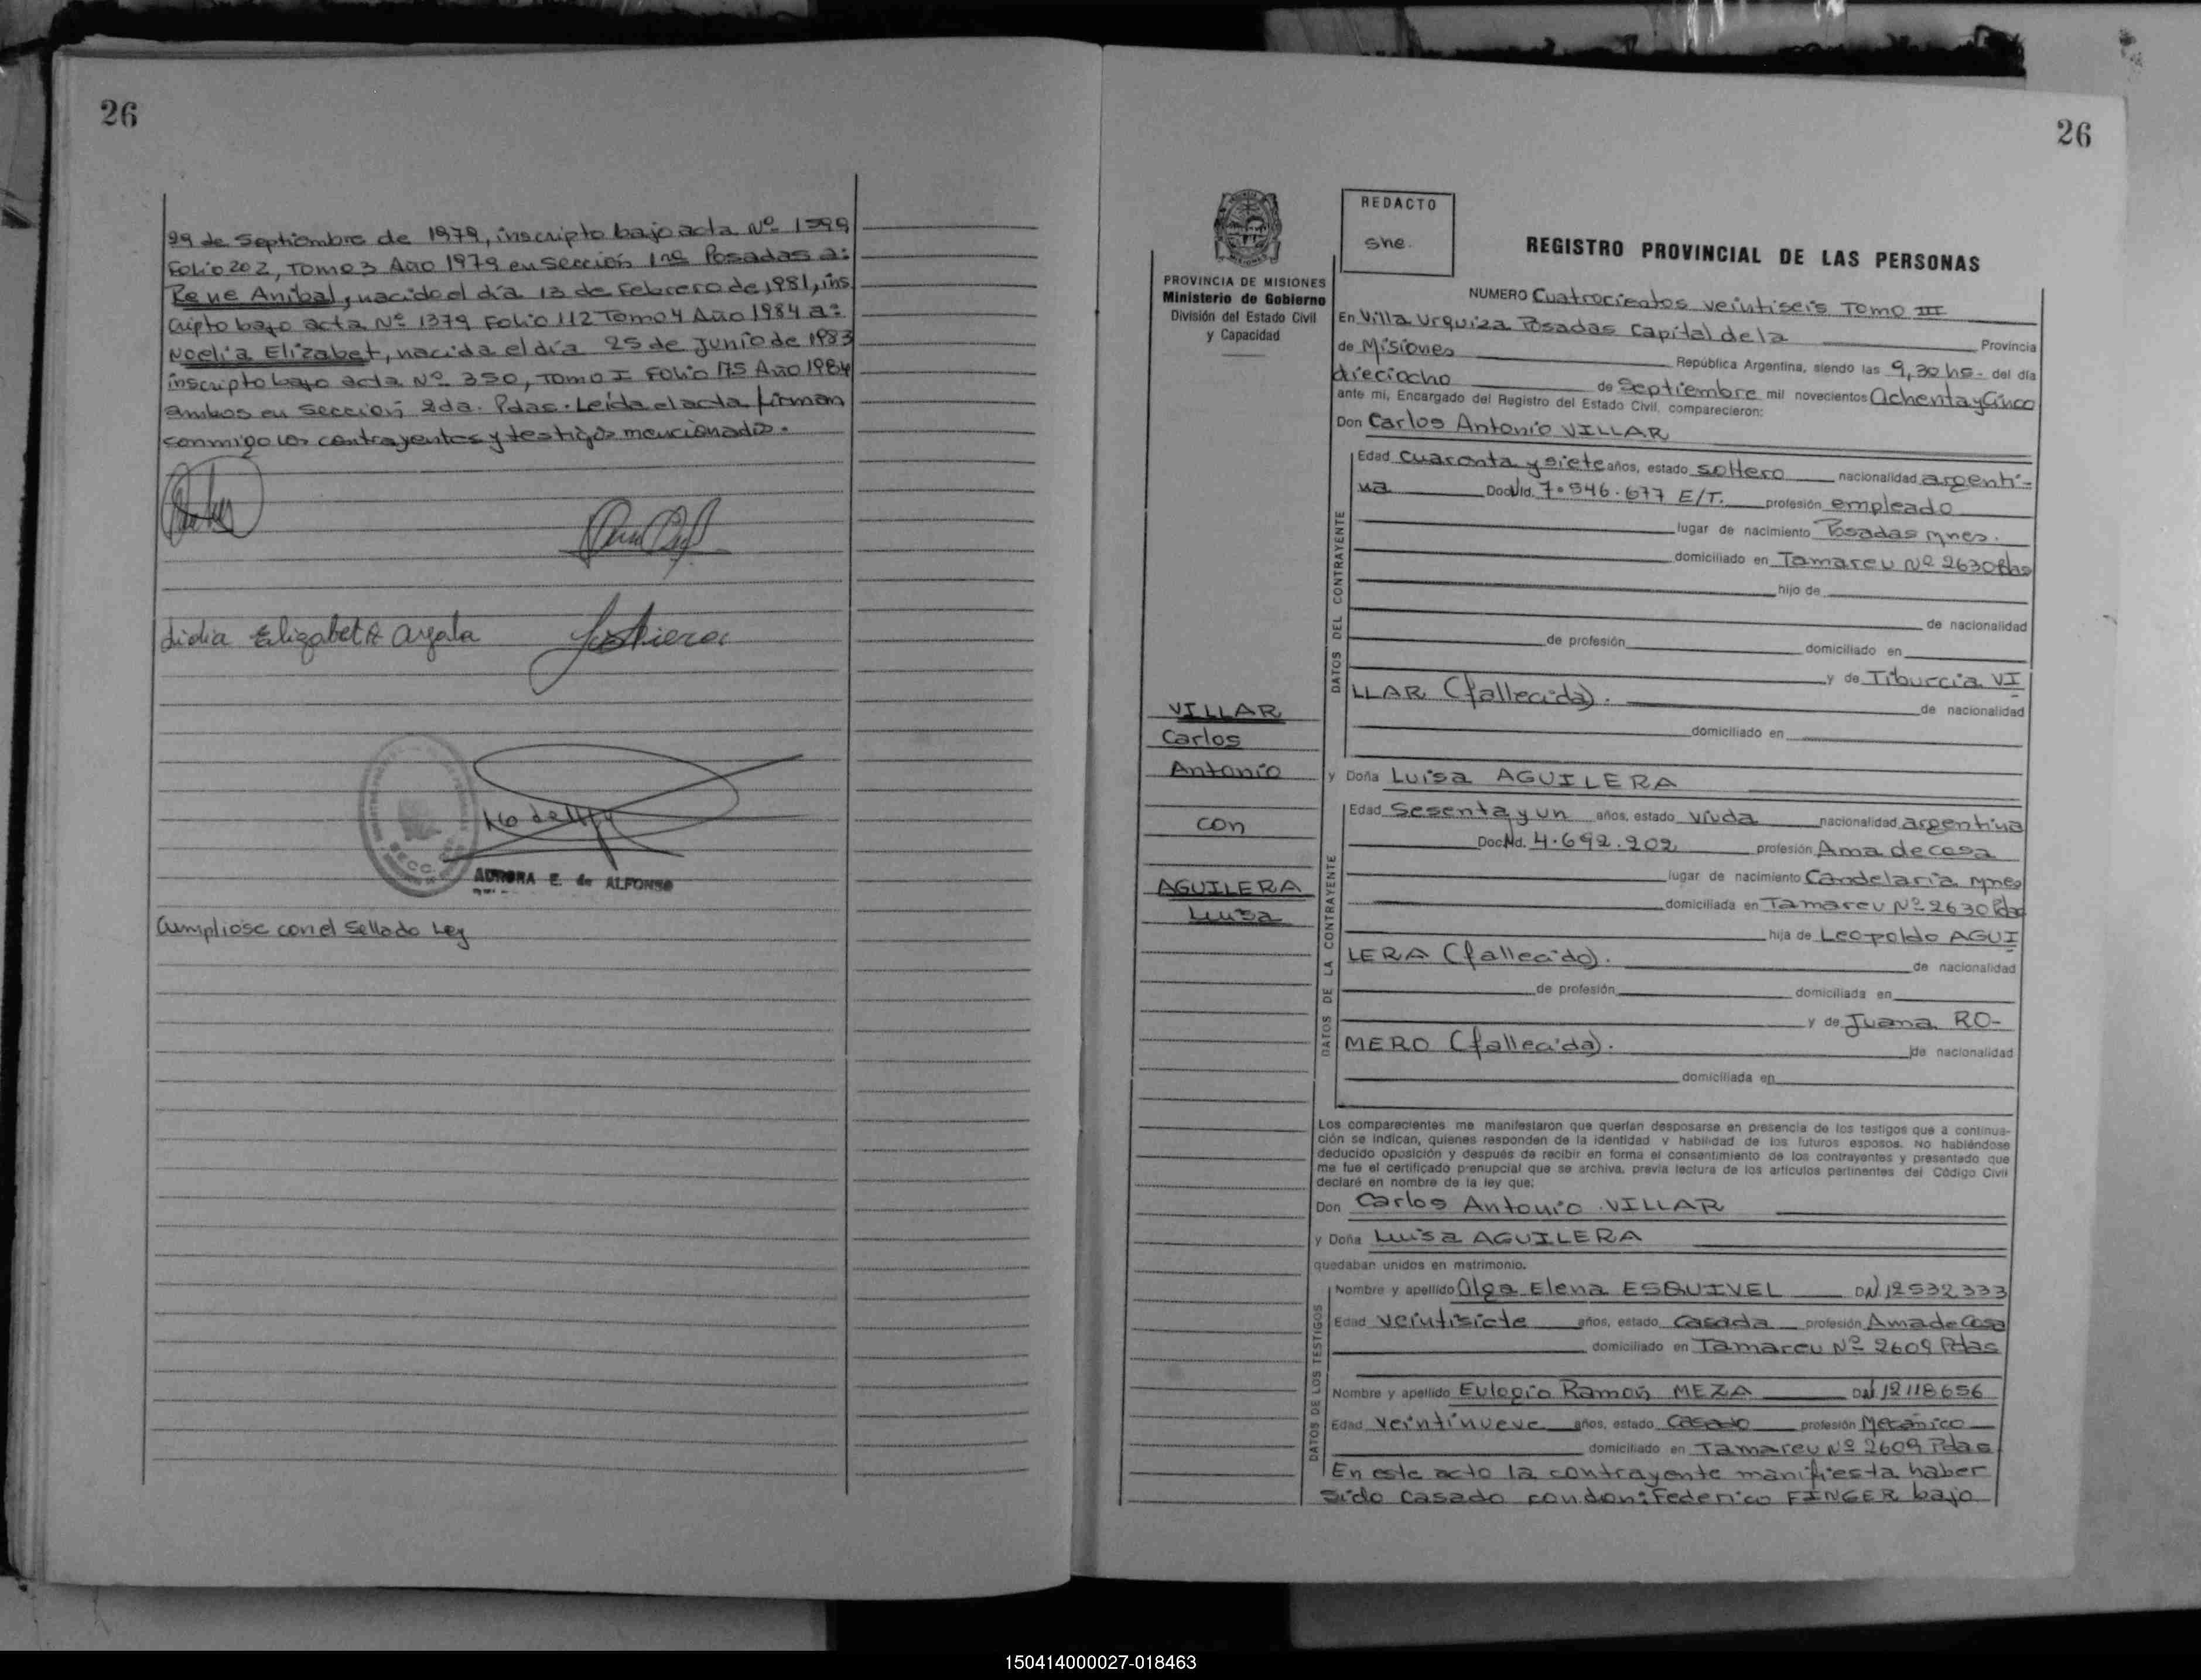 26
29 de Septiembre de 1979, inscripto bajo acta Nº 1599
Folio 202, Tomo 3 Año 1979 en Sección 1ra Posadas a:
Rene Anibal, nacido el día 13 de Febrero de 1981, ins
cripto bajo acta Nº 1379 Folio 112 Tomo 4 Año 1984 a:
Noelia Elizabet, nacida el día 25 de Junio de 1983
inscripto bajo acta Nº 350, Tomo I Folio 175 Año 1984
ambos en Sección 2da. Pdas. Leída el acta firman
conmigo los contrayentes y testigos mencionados.
Lidia Elizabeth Ayala
AURORA E. de ALFONSO
Cumpliose con el Sellado Ley
26
REDACTO
she.
REGISTRO PROVINCIAL DE LAS PERSONAS
PROVINCIA DE MISIONES
Ministerio de Gobierno
División del Estado Civil
y Capacidad
NUMERO Cuatrocientos veintiseis Tomo III
En Villa Urquiza Posadas Capital de la Provincia
de Misiones República Argentina, siendo las 9,30 hs- del día
dieciocho de Septiembre mil novecientos Ochenta y Cinco
ante mi, Encargado del Registro del Estado Civil, comparecieron:
Don Carlos Antonio VILLAR
DATOS DEL CONTRAYENTE
Edad cuarenta y siete años, estado soltero nacionalidad argenti-
na Doc. Id. 7.546.677 E/T. profesión empleado
lugar de nacimiento Posadas Mnes.
domiciliado en Tamareu Nº 2630 Pdas
hijo de
de nacionalidad
de profesión domiciliado en
y de Tiburcia VI
LLAR (fallecida). de nacionalidad
domiciliado en
VILLAR
Carlos
Antonio
con
AGUILERA
Luisa
y Doña Luisa AGUILERA
DATOS DE LA CONTRAYENTE
Edad Sesenta y un años, estado viuda nacionalidad argentina
Doc. Id. 4.692.202 profesión Ama de casa
lugar de nacimiento Candelaria Mnes
domiciliada en Tamareu Nº 2630 Pdas
hija de Leopoldo AGUI
LERA (fallecido). de nacionalidad
de profesión domiciliada en
y de Juana RO-
MERO (fallecida). de nacionalidad
domiciliada en
Los comparecientes me manifestaron que querían desposarse en presencia de los testigos que a continua-
ción se indican, quienes responden de la identidad y habilidad de los futuros esposos. No habiéndose
deducido oposición y después de recibir en forma el consentimiento de los contrayentes y presentado que
me fue el certificado prenupcial que se archiva, previa lectura de los artículos pertinentes del Código Civil
declaré en nombre de la ley que:
Don Carlos Antonio VILLAR
y Doña Luisa AGUILERA
quedaban unidos en matrimonio.
DATOS DE LOS TESTIGOS
Nombre y apellido Olga Elena ESQUIVEL DNI 12532333
Edad veintisiete años, estado Casada profesión Ama de Casa
domiciliado en Tamareu Nº 2609 Pdas
Nombre y apellido Eulogio Ramon MEZA DNI 12118656
Edad veintinueve años, estado Casado profesión Mecánico
domiciliado en Tamareu Nº 2609 Pdas
En este acto la contrayente manifiesta haber
sido casado con don: Federico FINGER bajo
150414000027-018463